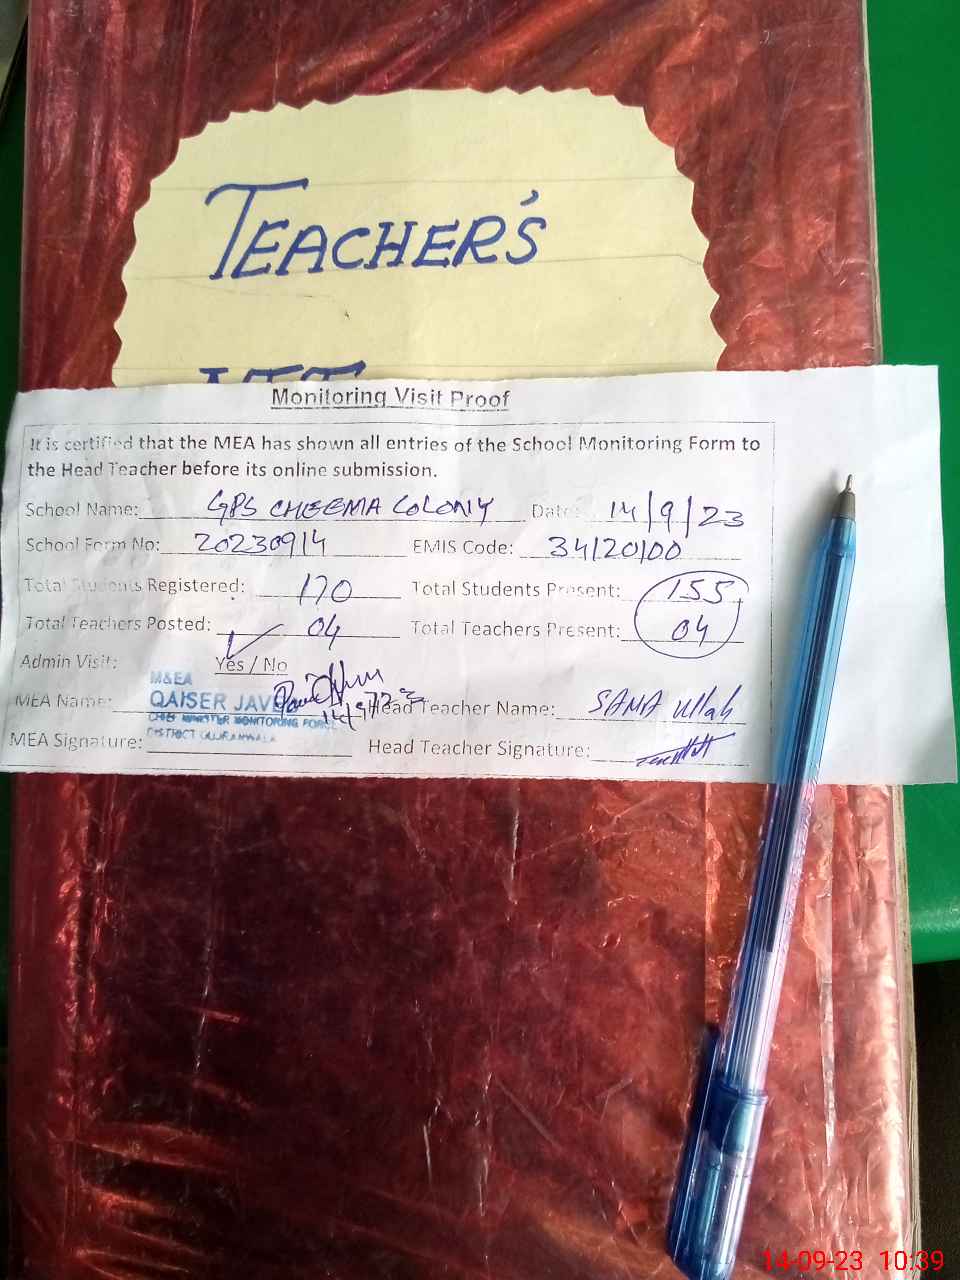 TEACHER'S
Monitoring Visit Proof
It is certified that the MEA has shown all entries of the School Monitoring Form to
the Head Teacher before its online submission.
School Name: GPS CHEEMA COLONY Date: 14/9/23
School Form No: 20230914 EMIS Code: 34120100
Total Students Registered: 170 Total Students Present: 155
Total Teachers Posted: 04 Total Teachers Present: 04
Admin Visit: Yes / No
M&EA
MEA Name: QAISER JAVED Head Teacher Name: SANA Ullah
CHIEF MINISTER MONITORING FORCE
DISTRICT GUJRANWALA
MEA Signature: Head Teacher Signature:
14-09-23 10:39